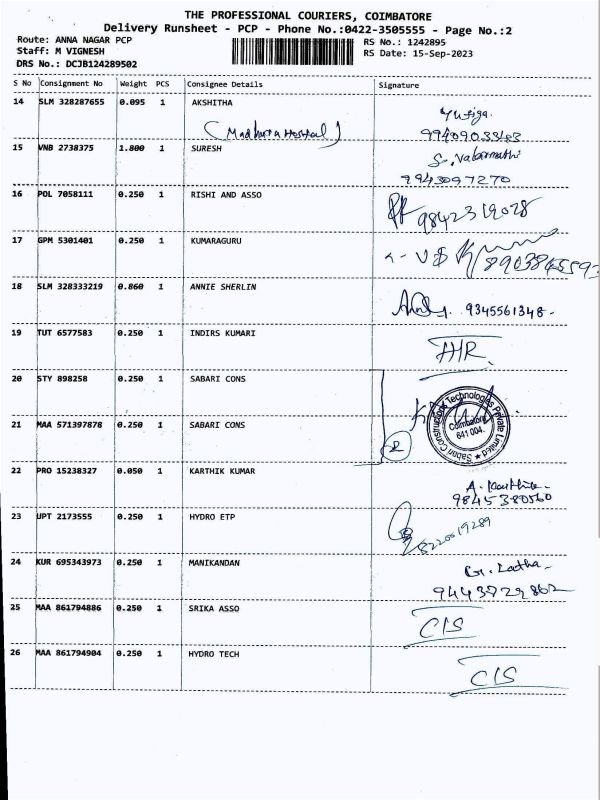 THE PROFESSIONAL COURIERS, COIMBATORE
Delivery Runsheet - PCP - Phone No.:0422-3505555 - Page No.:2
Route: ANNA NAGAR PCP
RS No.: 1242895
Staff: M VIGNESH
RS Date: 15-Sep-2023
DRS No.: DCJB124289502
S No Consignment No Weight PCS Consignee Details Signature
14 SLM 328287655 0.095 1 AKSHITHA
15 VNB 2738375 1.800 1 SURESH
9943097270
16 POL 7058111 0.250 1 RISHI AND ASSO
9842319028
17 GPM 5301401 0.250 1 KUMARAGURU
18 SLM 328333219 0.860 1 ANNIE SHERLIN
9345561348
19 TUT 6577583 0.250 1 INDIRS KUMARI
20 STY 898258 0.250 1 SABARI CONS
Sabari Constructions Technologies Private Limited
Coimbatore
641 004.
21 MAA 571397878 0.250 1 SABARI CONS
2
22 PRO 15238327 0.050 1 KARTHIK KUMAR
A. Karthik
9845380560
23 UPT 2173555 0.250 1 HYDRO ETP
24 KUR 695343973 0.250 1 MANIKANDAN
G. Latha
9443729862
25 MAA 861794886 0.250 1 SRIKA ASSO
CIS
26 MAA 861794904 0.250 1 HYDRO TECH
CIS